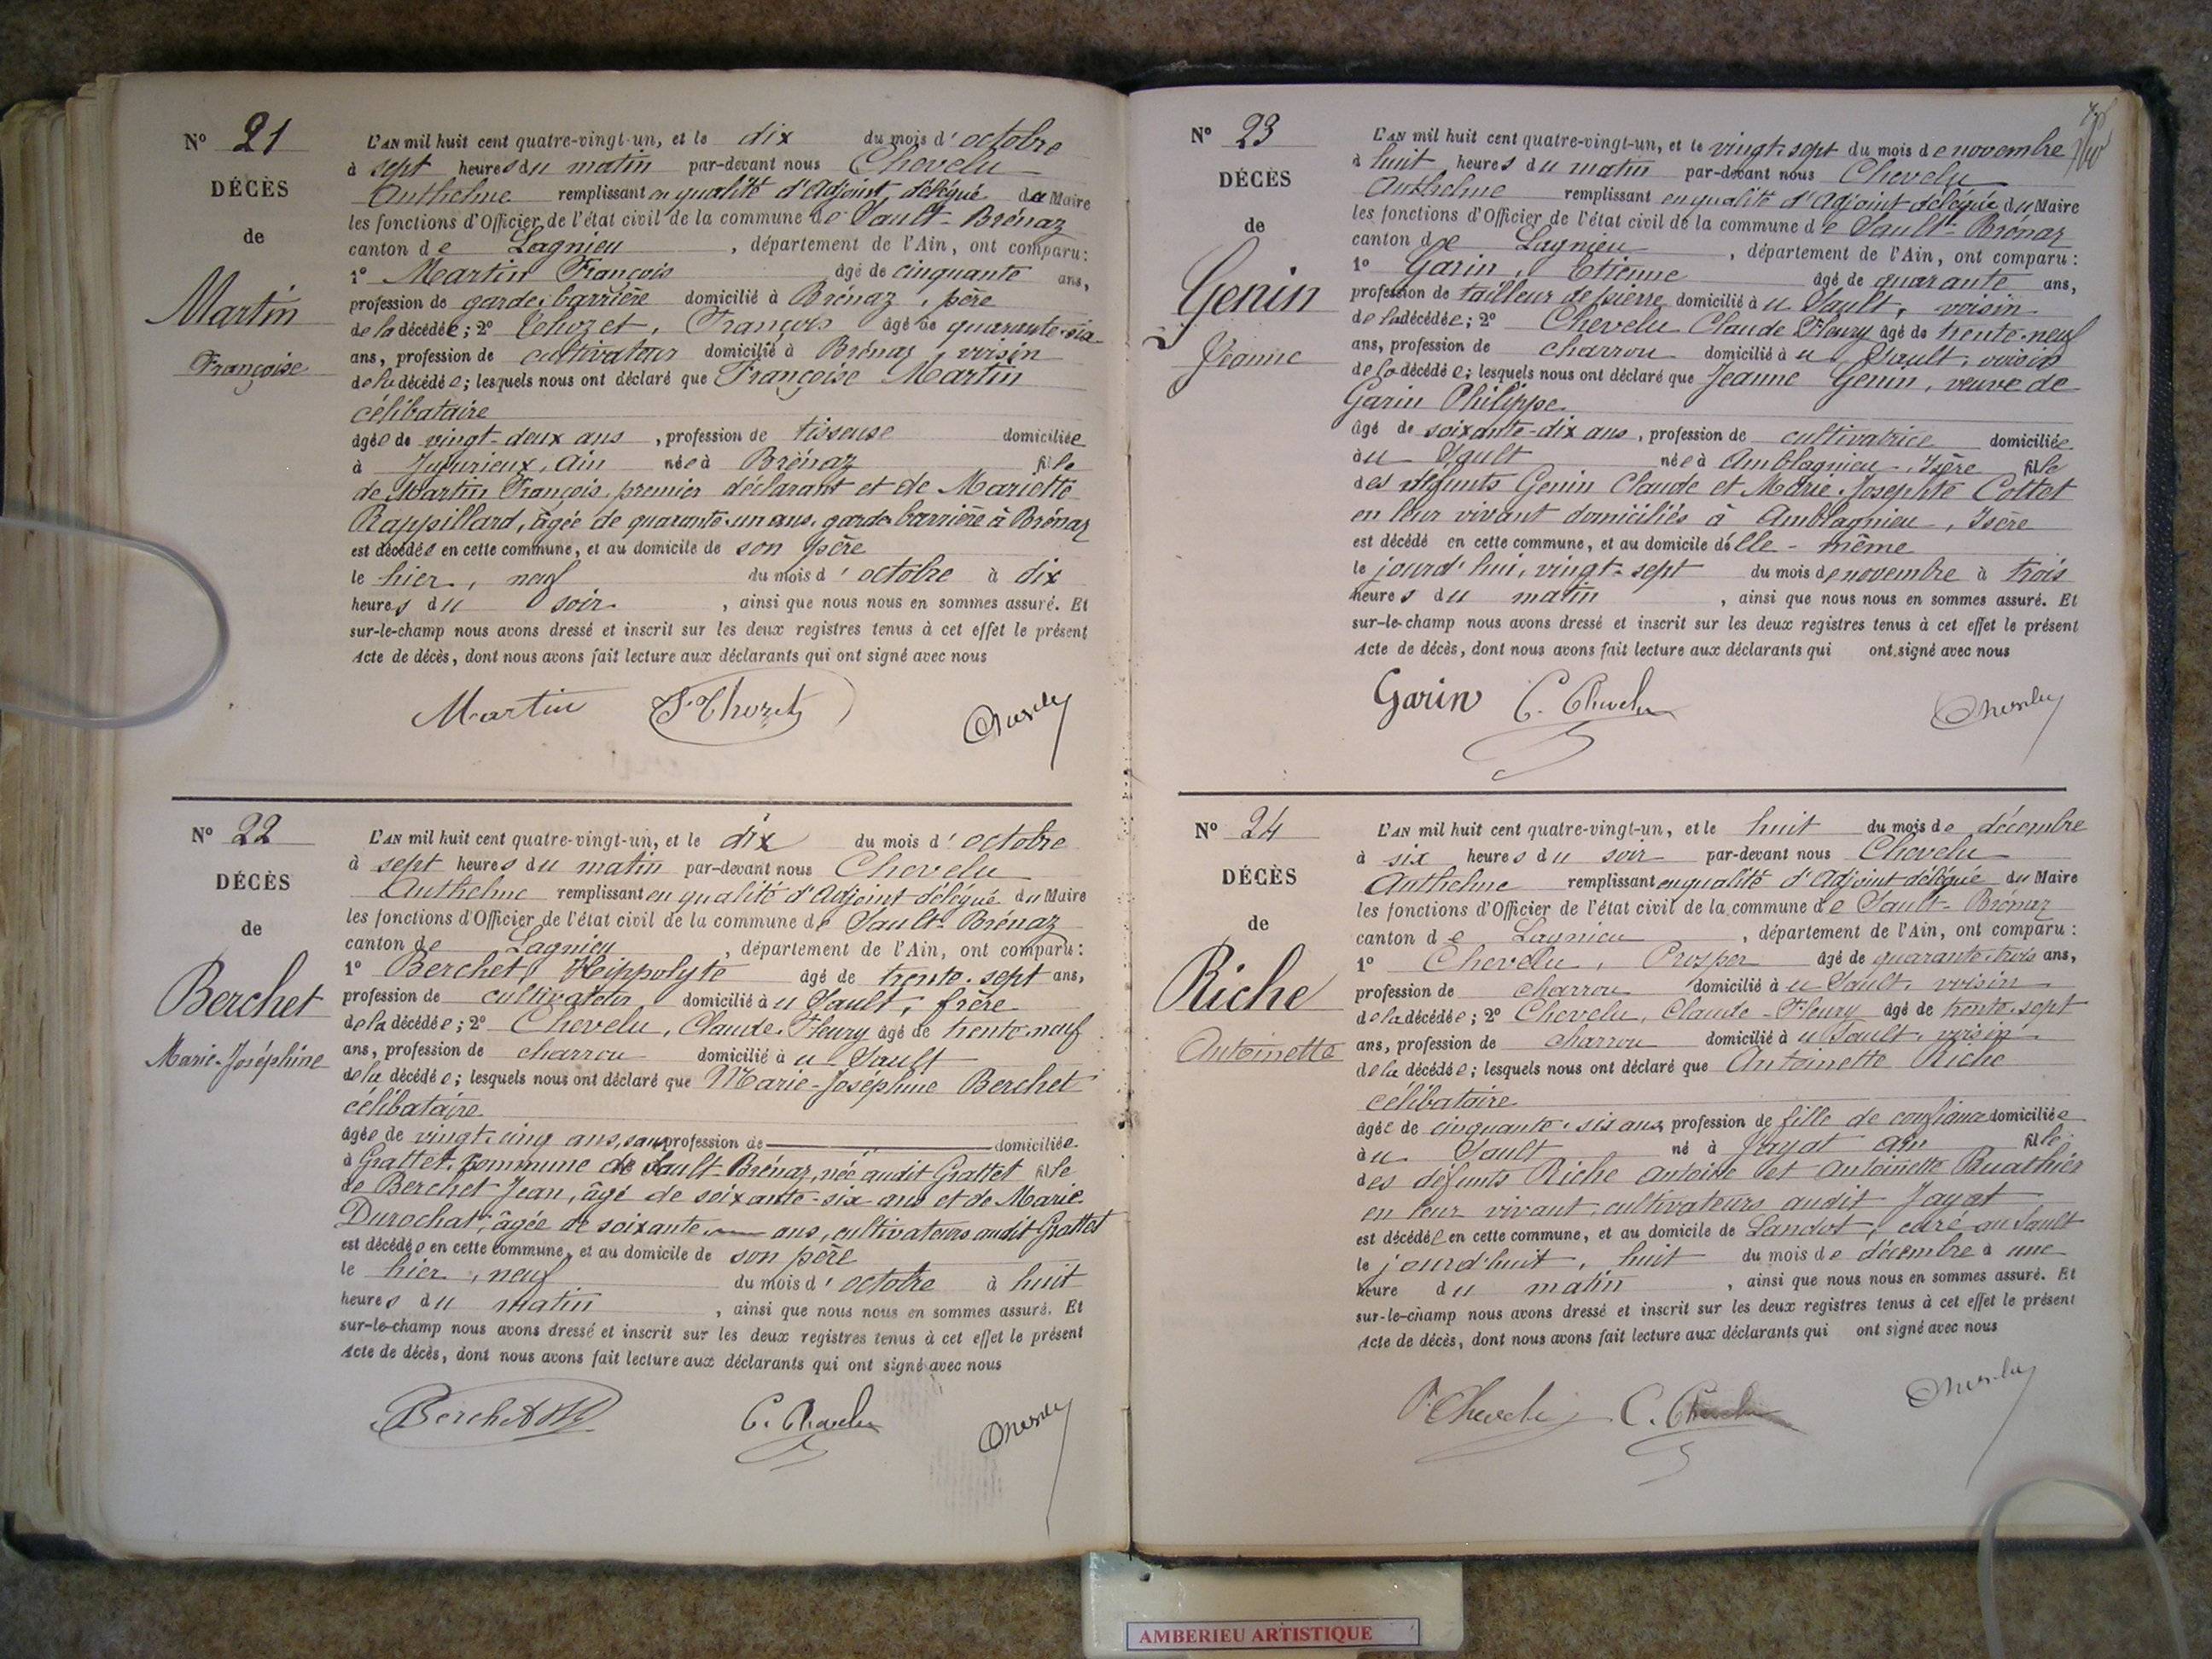 N° 21
DÉCÈS
de
Martin
Françoise
L'AN mil huit cent quatre-vingt-un, et le dix du mois d'octobre
à sept heures du matin par-devant nous Chevelu
Anthelme remplissant en qualité d'Adjoint délégué du Maire
les fonctions d'Officier de l'état civil de la commune de Sault-Brénaz
canton de Lagnieu, département de l'Ain, ont comparu :
1° Martin François âgé de cinquante ans,
profession de garde-barrière domicilié à Brénaz, père
de la décédée ; 2° Thozet, François âgé de quarante-six
ans, profession de cultivateur domicilié à Brénaz, voisin
de la décédée ; lesquels nous ont déclaré que Françoise Martin
célibataire
âgée de vingt-deux ans, profession de tisseuse domiciliée
à Jujurieux, Ain née à Brénaz fille
de Martin François, premier déclarant et de Mariette
Rappillard, âgée de quarante-un ans, garde-barrière à Brénaz
est décédée en cette commune, et au domicile de son père
le hier, neuf du mois d'octobre à dix
heures du soir, ainsi que nous nous en sommes assuré. Et
sur-le-champ nous avons dressé et inscrit sur les deux registres tenus à cet effet le présent
Acte de décès, dont nous avons fait lecture aux déclarants qui ont signé avec nous
Martin F. Thozet Chevelu
N° 22
DÉCÈS
de
Berchet
Marie-Joséphine
L'AN mil huit cent quatre-vingt-un, et le dix du mois d'octobre
à sept heures du matin par-devant nous Chevelu
Anthelme remplissant en qualité d'Adjoint délégué du Maire
les fonctions d'Officier de l'état civil de la commune de Sault-Brénaz
canton de Lagnieu, département de l'Ain, ont comparu :
1° Berchet Heippolyte âgé de trente-sept ans,
profession de cultivateur domicilié à u Sault, frère
de la décédée ; 2° Chevelu, Claude-Fleury âgé de trente-neuf
ans, profession de charron domicilié à u Sault
de la décédée ; lesquels nous ont déclaré que Marie-Joséphine Berchet
célibataire
âgée de vingt-cinq ans, sans profession de domiciliée
à Grattet, commune de Sault-Brénaz, née audit Grattet fille
de Berchet Jean, âgé de soixante-six ans et de Marie
Durochat, âgée de soixante ans, cultivateurs audit Grattet
est décédée en cette commune, et au domicile de son père
le hier, neuf du mois d'octobre à huit
heures du matin, ainsi que nous nous en sommes assuré. Et
sur-le-champ nous avons dressé et inscrit sur les deux registres tenus à cet effet le présent
Acte de décès, dont nous avons fait lecture aux déclarants qui ont signé avec nous
Berchet C. Chevelu Chevelu
N° 23
DÉCÈS
de
Genin
Jeanne
L'AN mil huit cent quatre-vingt-un, et le vingt-sept du mois de novembre
à huit heures du matin par-devant nous Chevelu
Anthelme remplissant en qualité d'Adjoint délégué du Maire
les fonctions d'Officier de l'état civil de la commune de Sault-Brénaz
canton de Lagnieu, département de l'Ain, ont comparu :
1° Garin, Etienne âgé de quarante ans,
profession de tailleur de pierre domicilié à u Sault, voisin
de la décédée ; 2° Chevelu Claude Fleury âgé de trente-neuf
ans, profession de charron domicilié à u Sault, voisin
de la décédée ; lesquels nous ont déclaré que Jeanne Genin, veuve de
Garin Philippe
âgé de soixante-dix ans, profession de cultivatrice domiciliée
àu Sault née à Amblagnieu, Isère fille
des défunts Genin Claude et Marie-Josephte Cottet
en leur vivant domiciliés à Amblagnieu, Isère
est décédé en cette commune, et au domicile d'elle-même
le jourd'hui, vingt-sept du mois de novembre à trois
heures du matin, ainsi que nous nous en sommes assuré. Et
sur-le-champ nous avons dressé et inscrit sur les deux registres tenus à cet effet le présent
Acte de décès, dont nous avons fait lecture aux déclarants qui ont signé avec nous
Garin C. Chevelu Chevelu
N° 24
DÉCÈS
de
Riche
Antoinette
L'AN mil huit cent quatre-vingt-un, et le huit du mois de décembre
à six heures du soir par-devant nous Chevelu
Anthelme remplissant en qualité d'Adjoint délégué du Maire
les fonctions d'Officier de l'état civil de la commune de Sault-Brénaz
canton de Lagnieu, département de l'Ain, ont comparu :
1° Chevelu, Prosper âgé de quarante-trois ans,
profession de charron domicilié à u Sault, voisin
de la décédée ; 2° Chevelu, Claude-Fleury âgé de trente-sept
ans, profession de charron domicilié à u Sault, voisin
de la décédée ; lesquels nous ont déclaré que Antoinette Riche
célibataire
âgée de cinquante-six ans, profession de fille de confiance domiciliée
àu Sault né à Jayat Ain fille
des défunts Riche Antoine et Antoinette Ruathier
en leur vivant, cultivateurs audit Jayat
est décédée en cette commune, et au domicile de Landot, curé au Sault
le jourd'huit, huit du mois de décembre à une
heure du matin, ainsi que nous nous en sommes assuré. Et
sur-le-champ nous avons dressé et inscrit sur les deux registres tenus à cet effet le présent
Acte de décès, dont nous avons fait lecture aux déclarants qui ont signé avec nous
P. Chevelu C. Chevelu Chevelu
AMBERIEU ARTISTIQUE